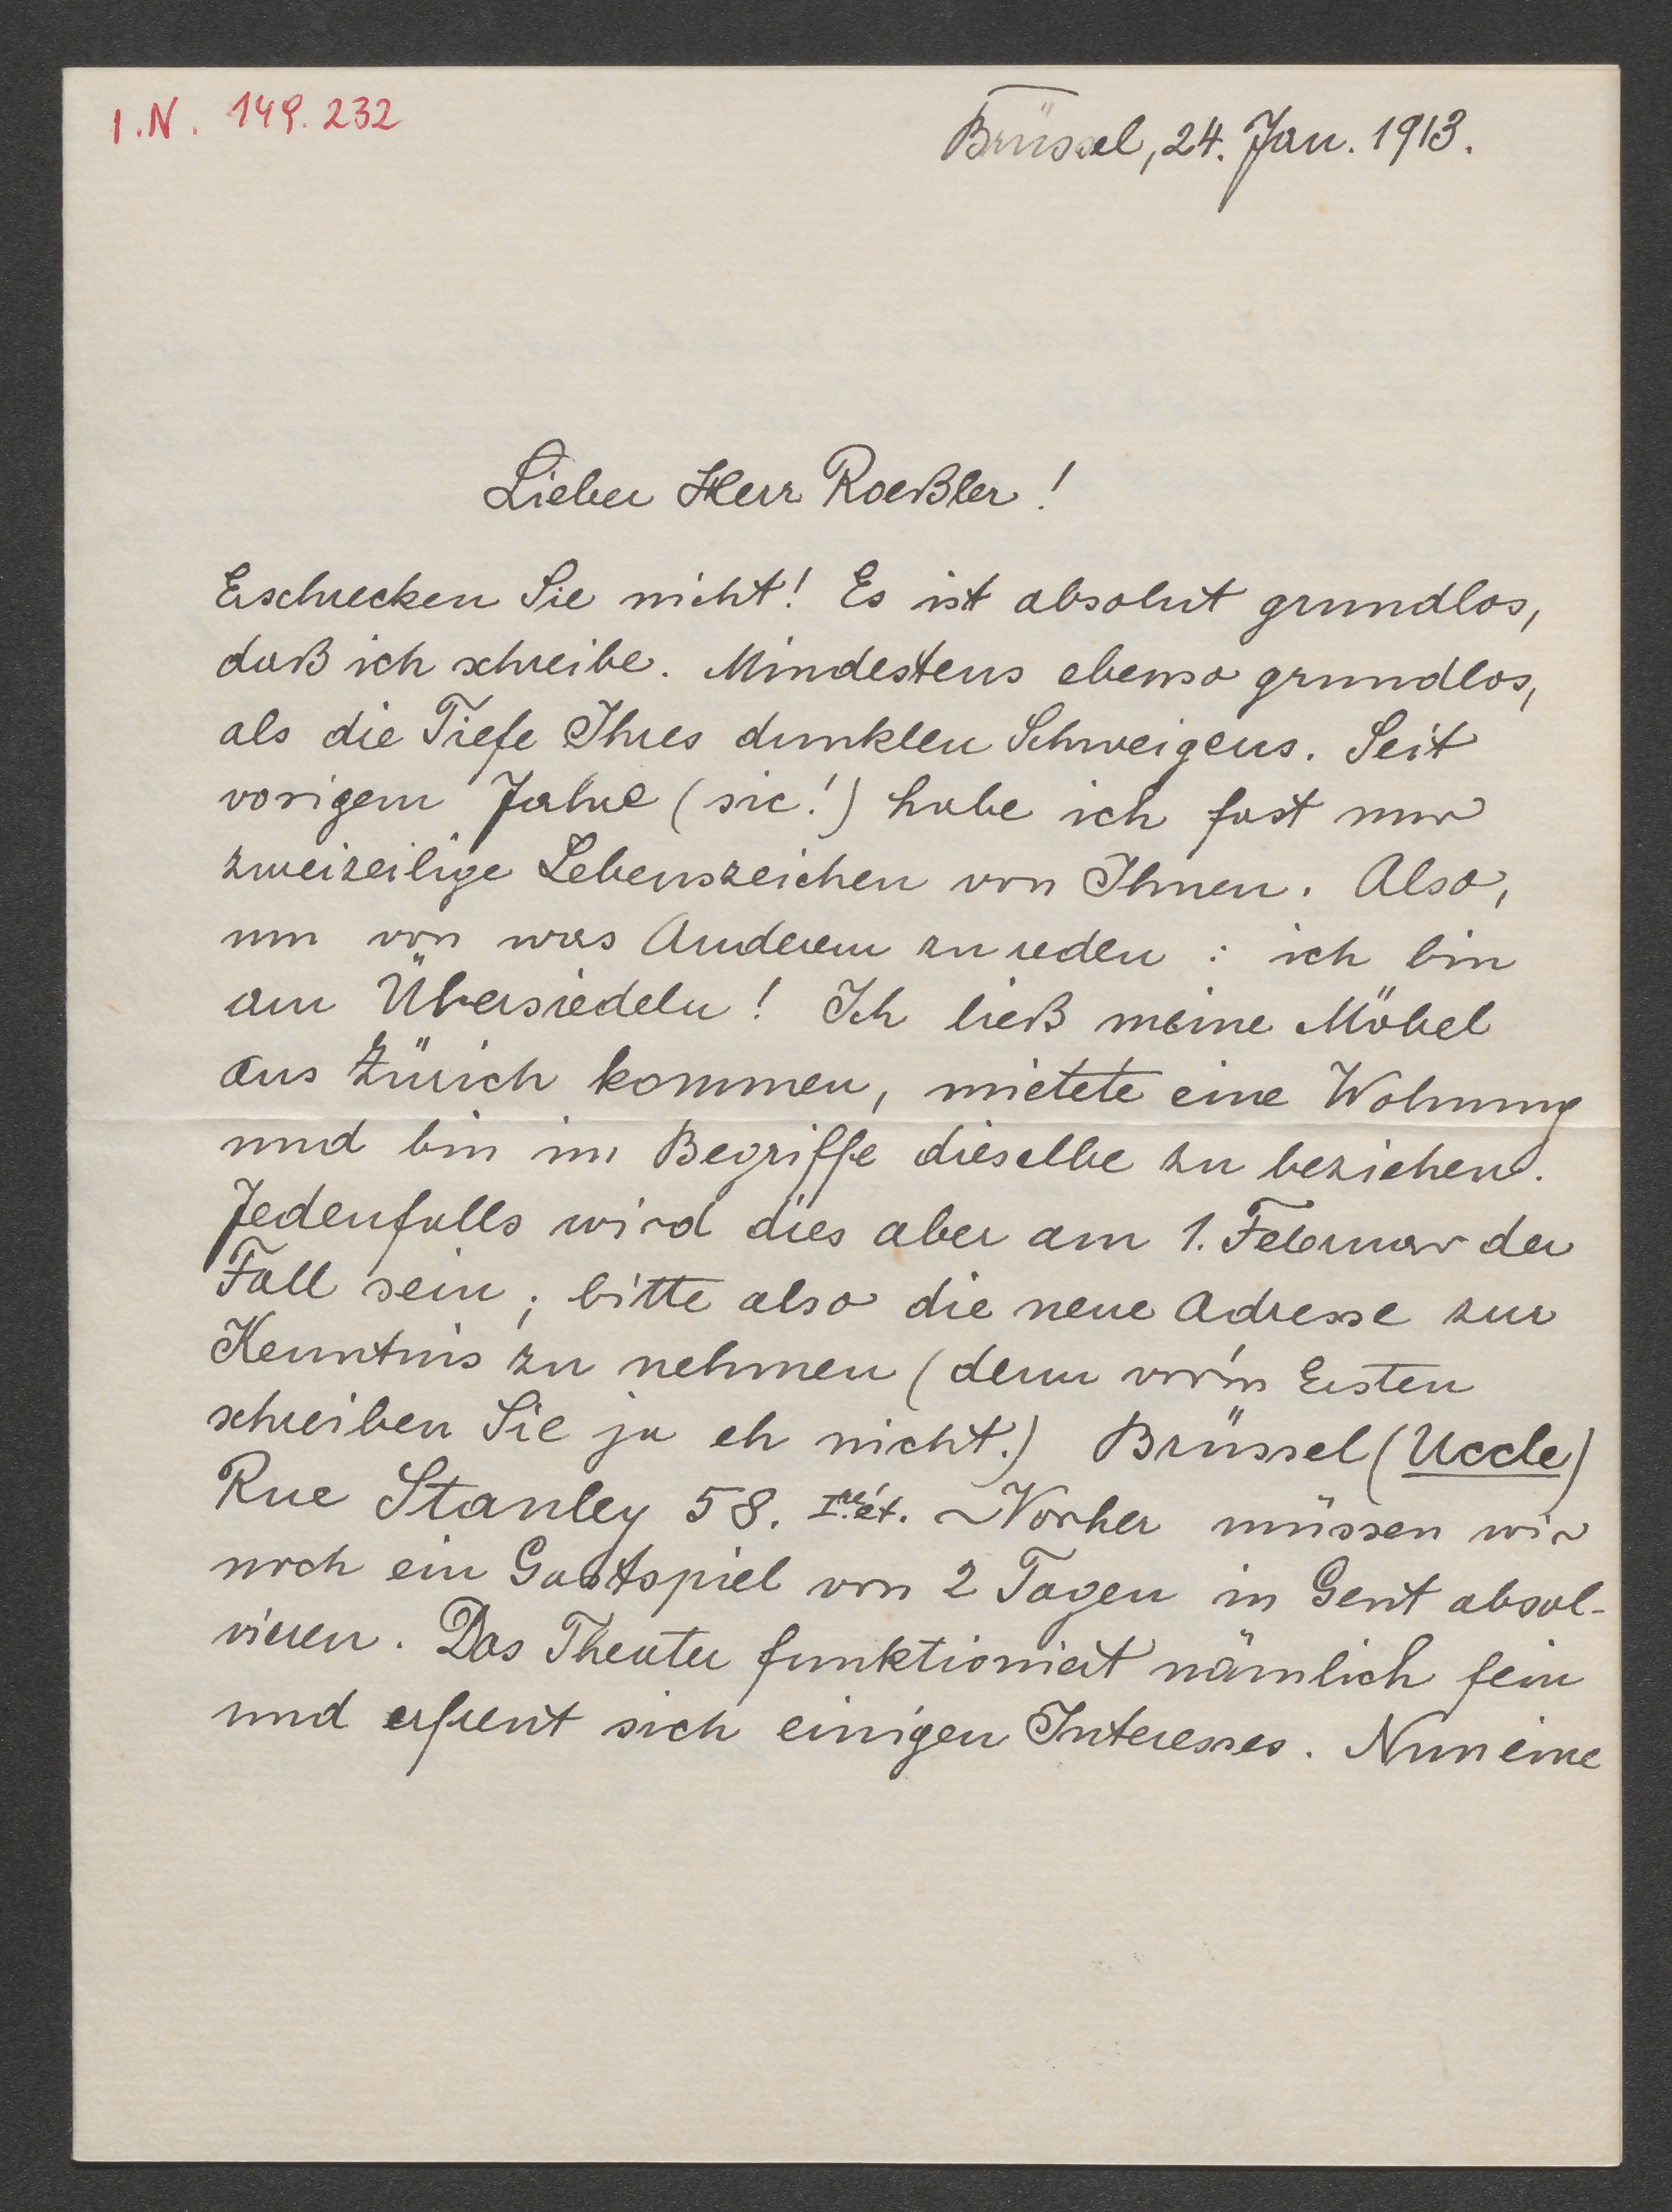 I.N. 149.232
Brüssel, 24. Jan. 1913.
Lieber Herr Roeßler!
Erschrecken Sie nicht! Es ist absolut grundlos,
daß ich schreibe. Mindestens ebenso grundlos,
als die Tiefe Ihres dunklen Schweigens. Seit
vorigem Jahre (sic!) habe ich fast nur
zweizeilige Lebenszeichen von Ihnen. Also,
um von was Anderem zu reden: ich bin
am Übersiedeln! Ich ließ meine Möbel
aus Zürich kommen, mietete eine Wohnung
und bin im Begriffe dieselbe zu beziehen.
Jedenfalls wird dies aber am 1. Februar der
Fall sein; bitte also die neue Adresse zur
Kenntnis zu nehmen (denn vor'm Ersten
schreiben Sie ja eh nicht.) Brüssel (Uccle)
Rue Stanley 58. Ier ét. ~ Vorher müssen wir
noch ein Gastspiel von 2 Tagen in Gent absol-
vieren. Das Theater funktioniert nämlich fein
und erfreut sich einigen Interesses. Nun eine